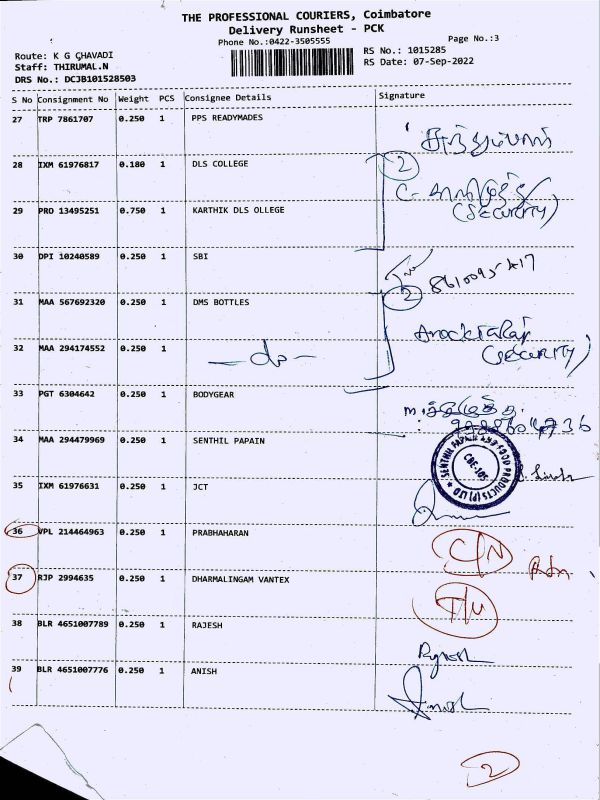 THE PROFESSIONAL COURIERS, Coimbatore
Delivery Runsheet - PCK
Phone No.:0422-3505555 Page No.:3
Route: K G CHAVADI RS No.: 1015285
Staff: THIRUMAL.N RS Date: 07-Sep-2022
DRS No.: DCJB101528503
S No Consignment No Weight PCS Consignee Details Signature
27 TRP 7861707 0.250 1 PPS READYMADES
28 IXM 61976817 0.180 1 DLS COLLEGE
2
(SECURITY)
29 PRO 13495251 0.750 1 KARTHIK DLS OLLEGE
30 DPI 10240589 0.250 1 SBI
31 MAA 567692320 0.250 1 DMS BOTTLES
2
32 MAA 294174552 0.250 1 -do-
(SECURITY)
33 PGT 6304642 0.250 1 BODYGEAR
34 MAA 294479969 0.250 1 SENTHIL PAPAIN
SENTHIL PAPAIN AND FOOD PRODUCTS (P) LTD
CBE-105
35 IXM 61976631 0.250 1 JCT
36 VPL 214464963 0.250 1 PRABHAHARAN C/N
37 RJP 2994635 0.250 1 DHARMALINGAM VANTEX
38 BLR 4651007789 0.250 1 RAJESH
39 BLR 4651007776 0.250 1 ANISH
2